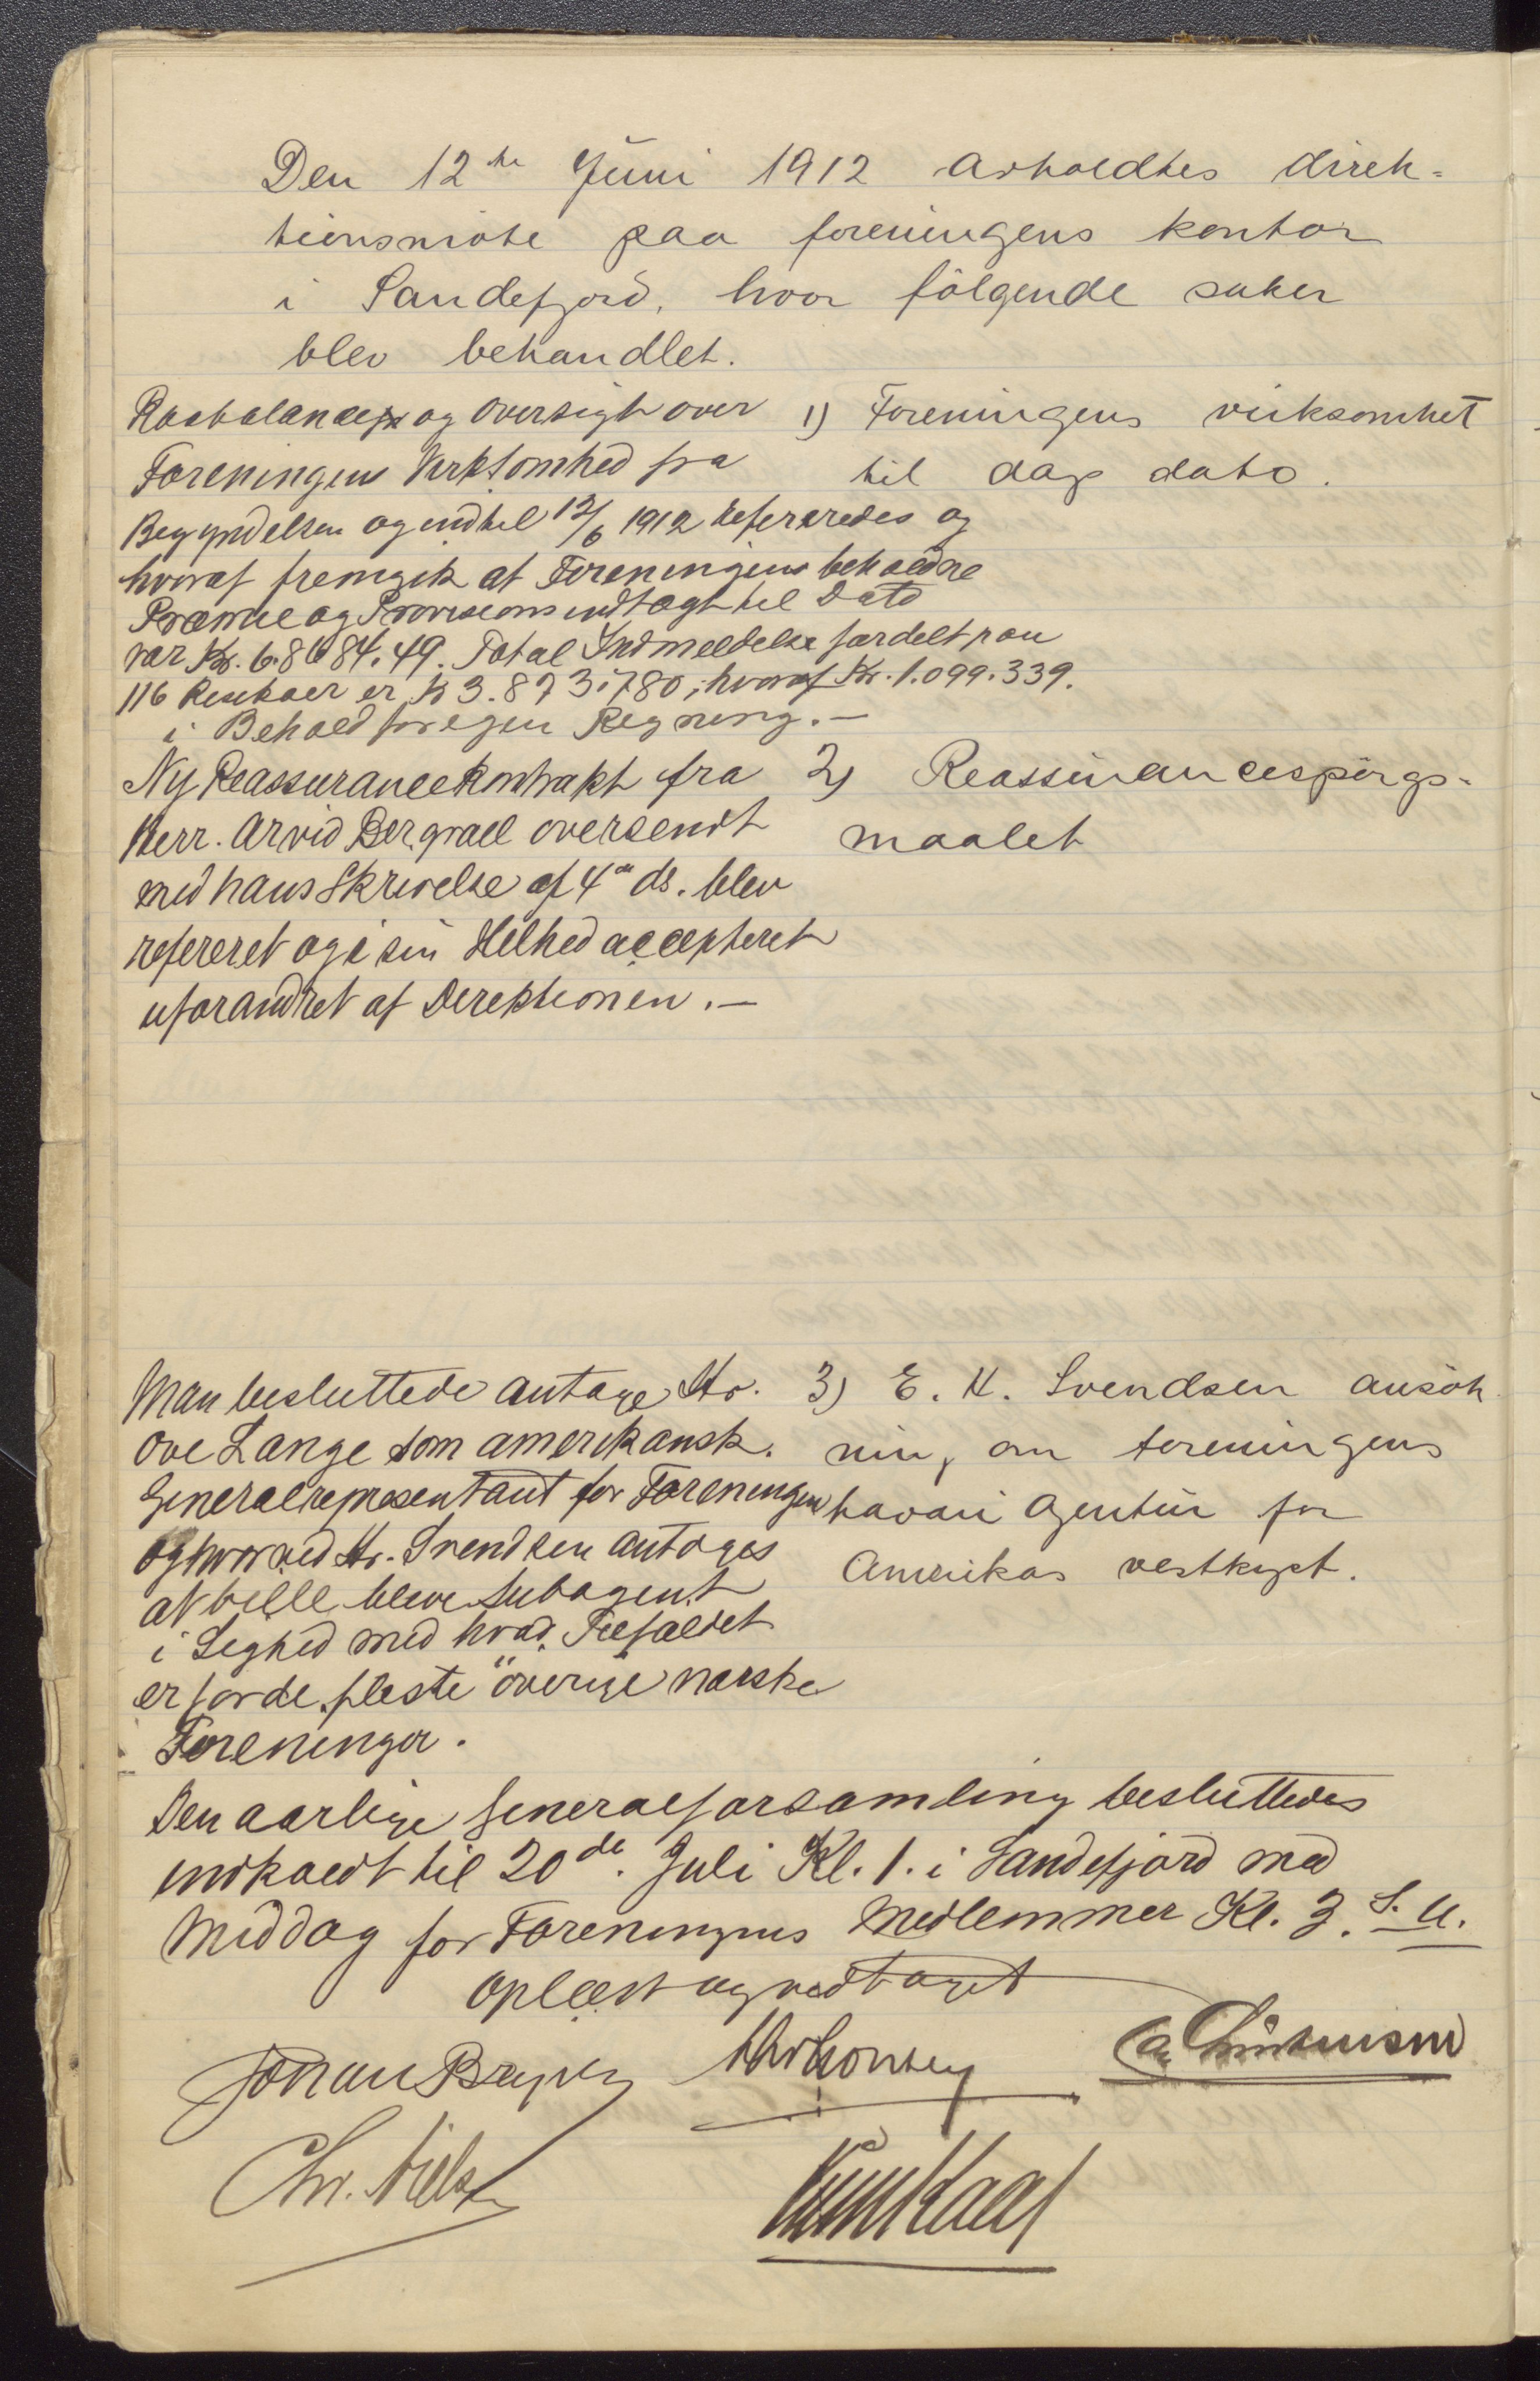 Den 12te Juni 1912 avholdtes direk-
tionsmöte paa foreningens kontor
i Sandefjord, hvor fölgende saker
blev behandlet.
1) Foreningens virksomhet
til dags dato.
Raabalance og oversigt over
Foreningens Virksomhed fra
Begyndelsen og indtil 12/6 1912 refereredes og
hvoraf fremgik at Foreningens beholdne
Præmie og Provisions indtægt til Dato
var Kr. 68684.49. Total Indmeldelse fordelt paa
116 Risikoer er Kr 3.873.780, hvoraf Kr. 1.099.339.
i Behold for egen Regning.—
2) Reassurancespörgs-
maalet
Ny Reassurancekontrakt fra
Herr. Arvid Bergvall oversendt
med hans Skrivelse af 4de ds. blev
refereret og i sin Helhed accepteret
uforandret af Direktionen.—
3) E. K. Svendsen ansök
ning om foreningens
havari Agentur for
Amerikas vestkyst.
Man besluttede antage Hr.
Ove Lange som amerikansk.
Generalrepresentant for Foreningen
og hvorved Hr. Svendsen antoges
at ville blive Subagent
i Lighed med hvad Tilfældet
er for de fleste överige norske
Foreninger.
Den aarlige Generalforsamling besluttedes
indkaldt til 20de. Juli Kl. 1. i Sandefjord med
Middag for Foreningens Medlemmer Kl. 3. S. U.
Oplæst og vedtaget
Johan Bryde
Chr. Nielsen